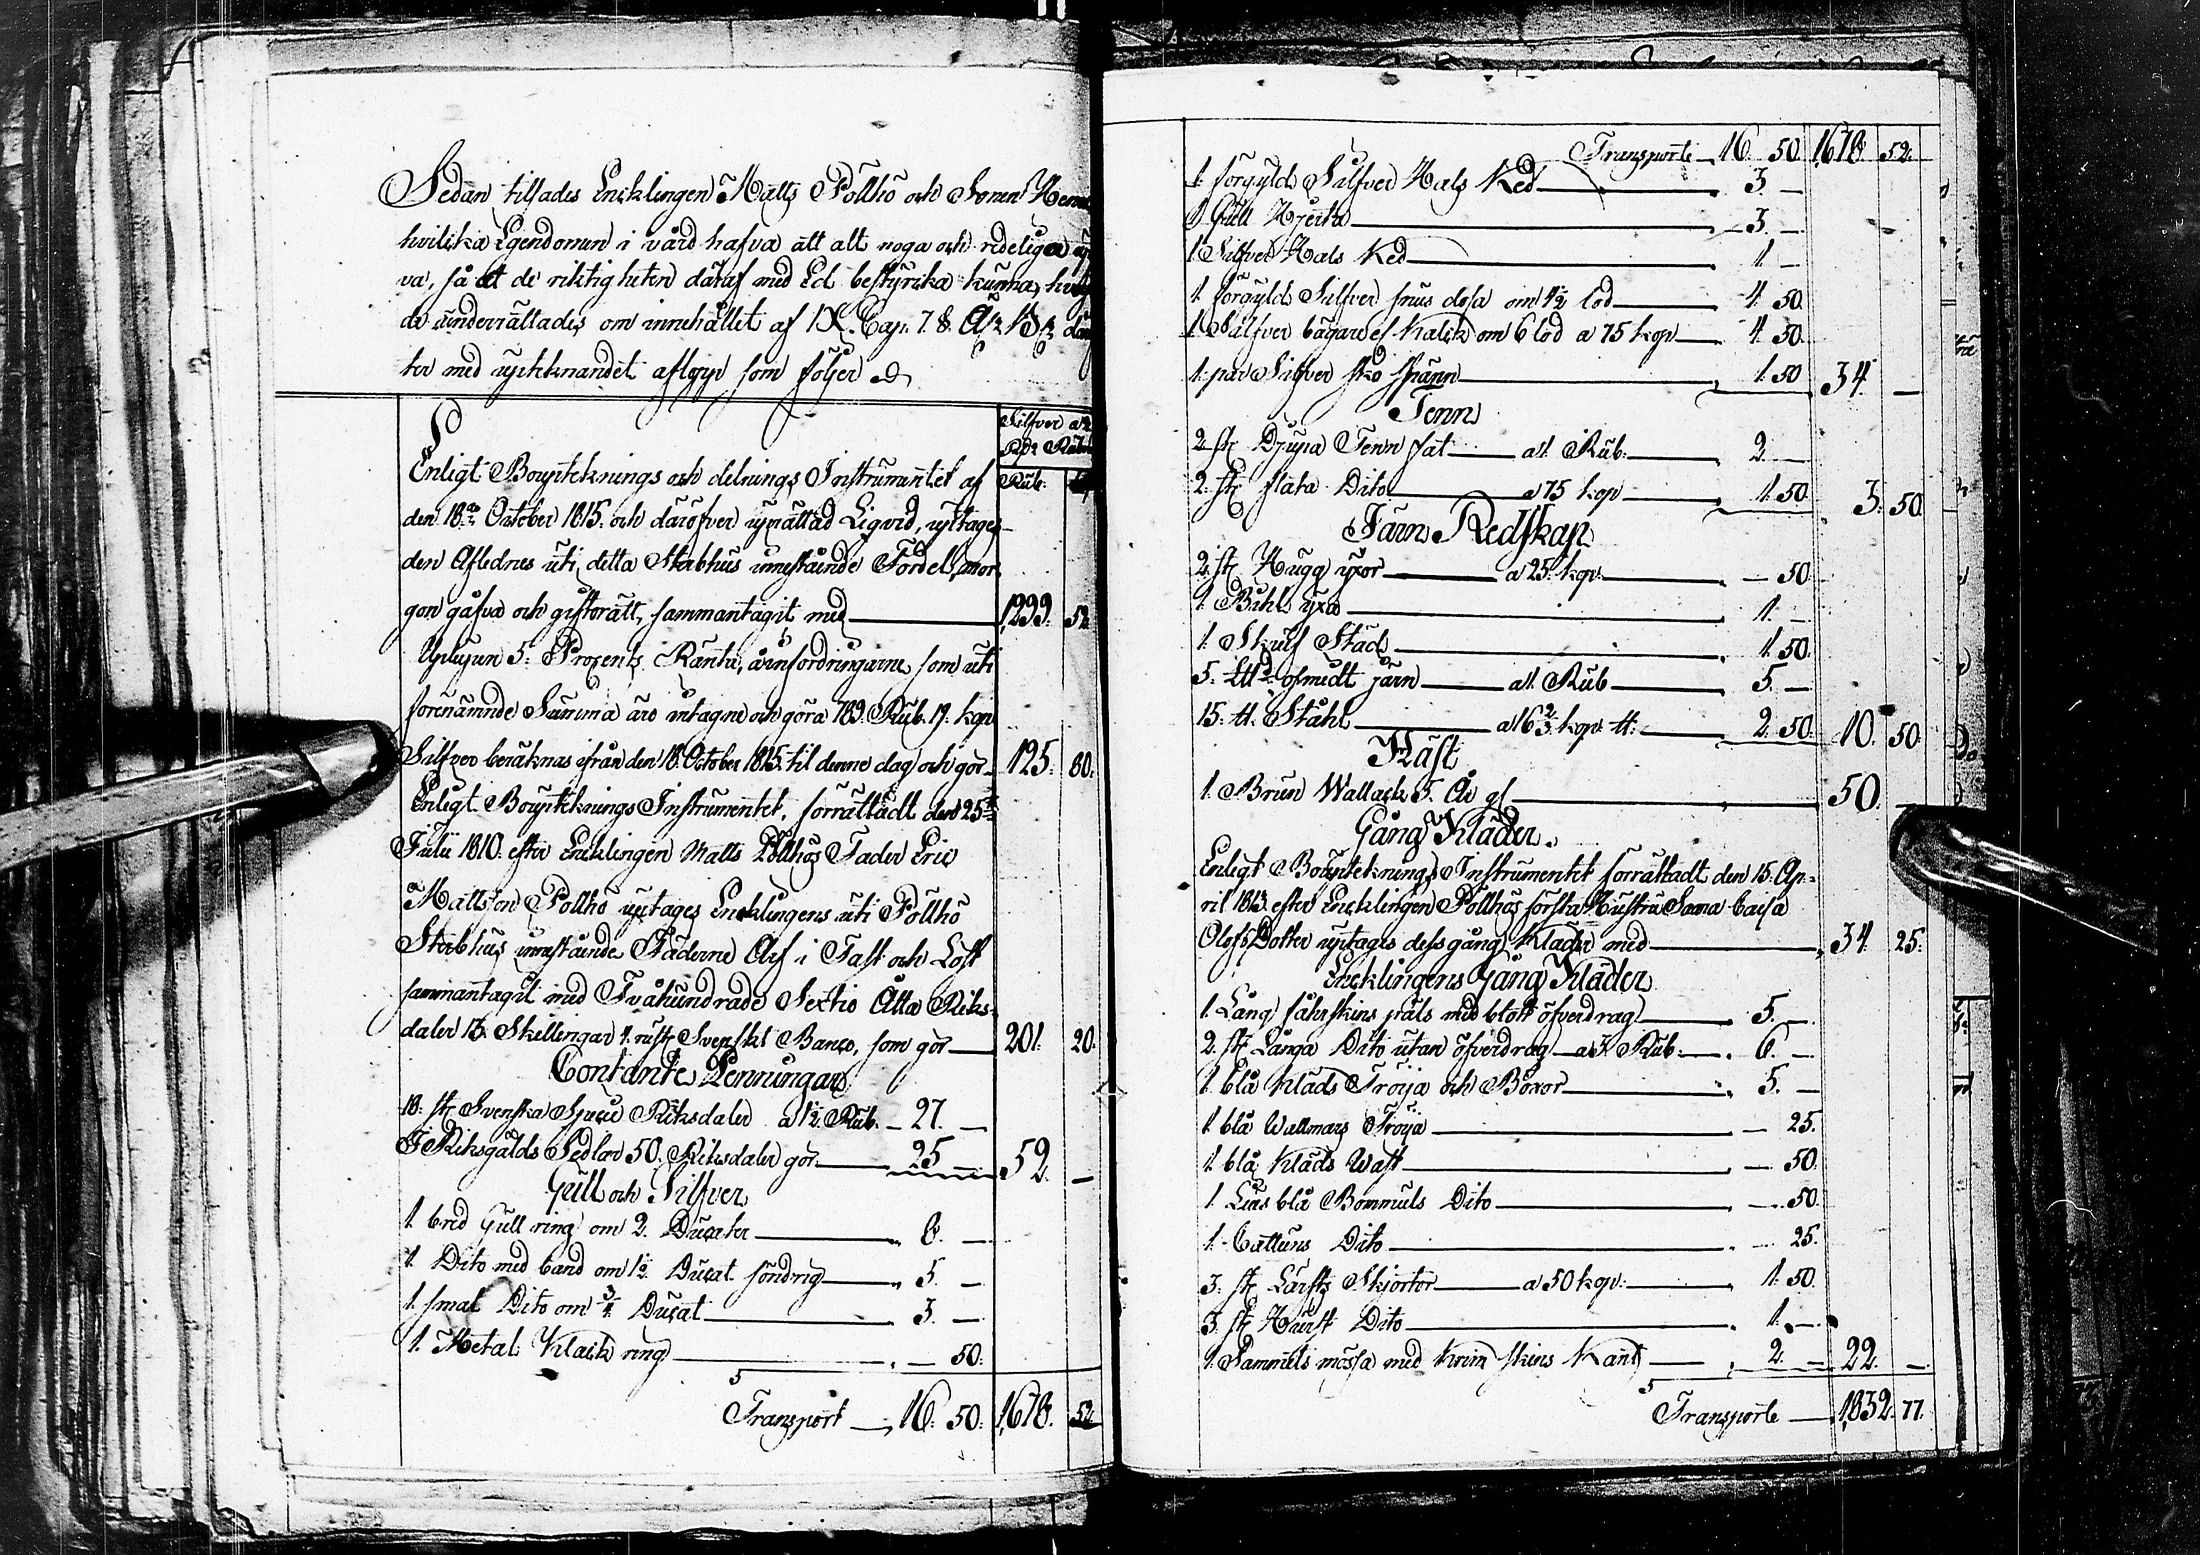 Sedan tillsades Encklingen Matts Pollho och Sonen
hvilka Egendomen i vård hafva att alt noga och redeligen
va, så at de riktigheten däraf med Ed bestyrcka kunna,
de underrättades om innehållet af IX. Cap. 7. §.
ter med uptecknandet aflopp som följer
Silfver
Rub.
Enligt Bouptecknings och delnings Instrumentet af
den 18:de October 1815. och däröfver uprättad Liqvid, uptages
den Aflednes uti detta Sterbhus innestående Fördel, mor
gon gåfva och giftorätt, sammantagit med 1,299. 52
Uplupen 5. Procents Ränta, å infordringarne som uti
förenämnde Summa äro intagne och göra 789. Rub. 19. kop
Silfver beräknas ifrån den 18. October 1815. til denne dag och gör 125. 80.
Enligt Bouptecknings Instrumentet, förrättadt den 25:te
Julii 1810. efter Encklingen Matts Pollhos Fader Eric
Mattsson Pollho uptages Encklingens uti Pollho
Sterbhus innestående Fäderne Arf i Fast och Löst
sammantagit med Tvåhundrade Sextio Åtta Riks-
daler 16 Skillingar 4. rust. Svenskt Banco, som gör 201. 20.
Contante Penningar
18. st. Svenska Specie Riksdaler a 1½ Rub. 27. —
I Riksgälds Sedlar 50. Riksdaler gör 25 — 52. —
Gull och Silfver
1. bred Gull ring om 2. Ducater 8. —
1. Dito med band om 1½ Ducat söndrig 5. —
1. smal Dito om ¾ Ducat 3. —
1. Metal Klack ring — 50.
Transport 16. 50. 1,678. 52
Transporte 16. 50. 1,678. 52.
1. förgyld Silfver Hals Ked 3. —
1 Gull Hjerta 3. —
1 Silfver Hals Ked 1. —
1. förgyld Silfver snus dosa om 4½ lod 4. 50.
1. Silfver bägare el. Kalck om 6 lod a 75 kop 4. 50.
1. par Silfver sko spänn 1. 50 34. —
Tenn
2. st. Djupa Tenn fat a 1. Rub. 2. —
2. st. flata Dito a 75 kop 1. 50. 3. 50
Järn Redskap
2. st. Hugg yxor a 25. kop. — 50.
1. Bihl yxa 1. —
1. Skruf Städ 1. 50.
5. osmidt järn a 1. Rub 5. —
15. tt. Ståhl a 16⅔ kop. tt. 2. 50. 10. 50.
Häst
1. Brun Wallack 5. År gl. 50. —
Gång Kläder.
Enligt Bouptecknings Instrumentet förrättadt den 15. Ap-
ril 1813. efter Encklingen Pollhos första Hustru Caisa
Olofs Dotter uptages dess gång Kläder med 34. 25.
Encklingens Gång Kläder
1. Lång fåhrskins päls med blått öfverdrag 5. —
2. st. Långa Dito utan öfverdrag a 3. Rub. 6. —
1. blå Kläds Tröija och Böxor 5. —
1. blå Wallmars Tröija — 25.
1. blå Kläds Wäst — 50.
1. Lius blå Bommuls Dito — 50.
1. Cattuns Dito — 25.
3. st. Lärfts Skjortor a 50 kop. 1. 50.
3. st. Dito 1. —
1. Sammets mössa med Krim skins Kant 2. — 22. —
Transporte 1,832. 77.